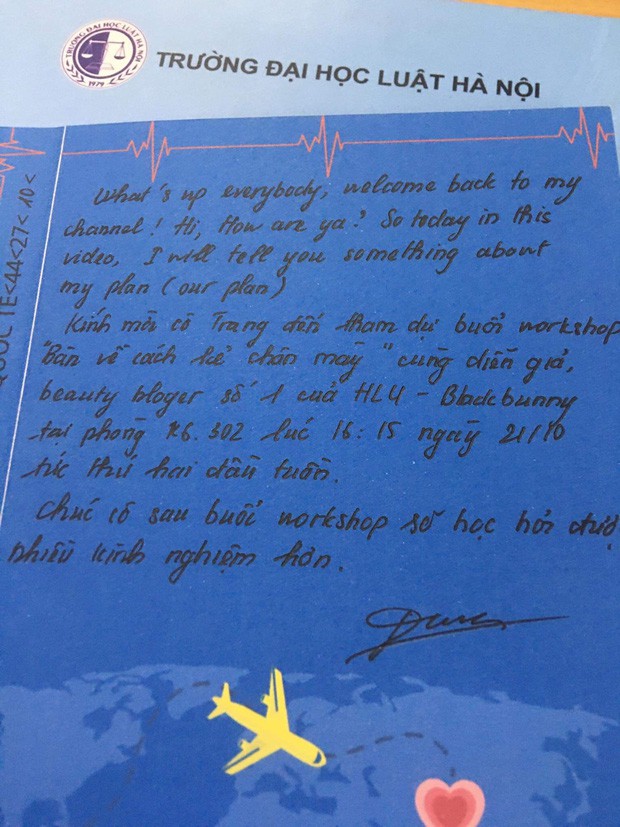 TRƯỜNG ĐẠI HỌC LUẬT HÀ NỘI
1979
TRƯỜNG ĐẠI HỌC LUẬT HÀ NỘI
QUỐC TẾ<44<27<10<
What's up everybody, welcome back to my
channel! Hi, How are ya? So today in this
video, I will tell you something about
my plan (our plan)
Kính mời cô Trang đến tham dự buổi workshop
"Bàn về cách kẻ chân mày" cùng diễn giả,
beauty bloger số 1 của HLU - Blackbunny
tại phòng K6.302 lúc 16:15 ngày 21/10
tức thứ hai đầu tuần.
Chúc cô sau buổi workshop sẽ học hỏi đượ
nhiều kinh nghiệm hơn.